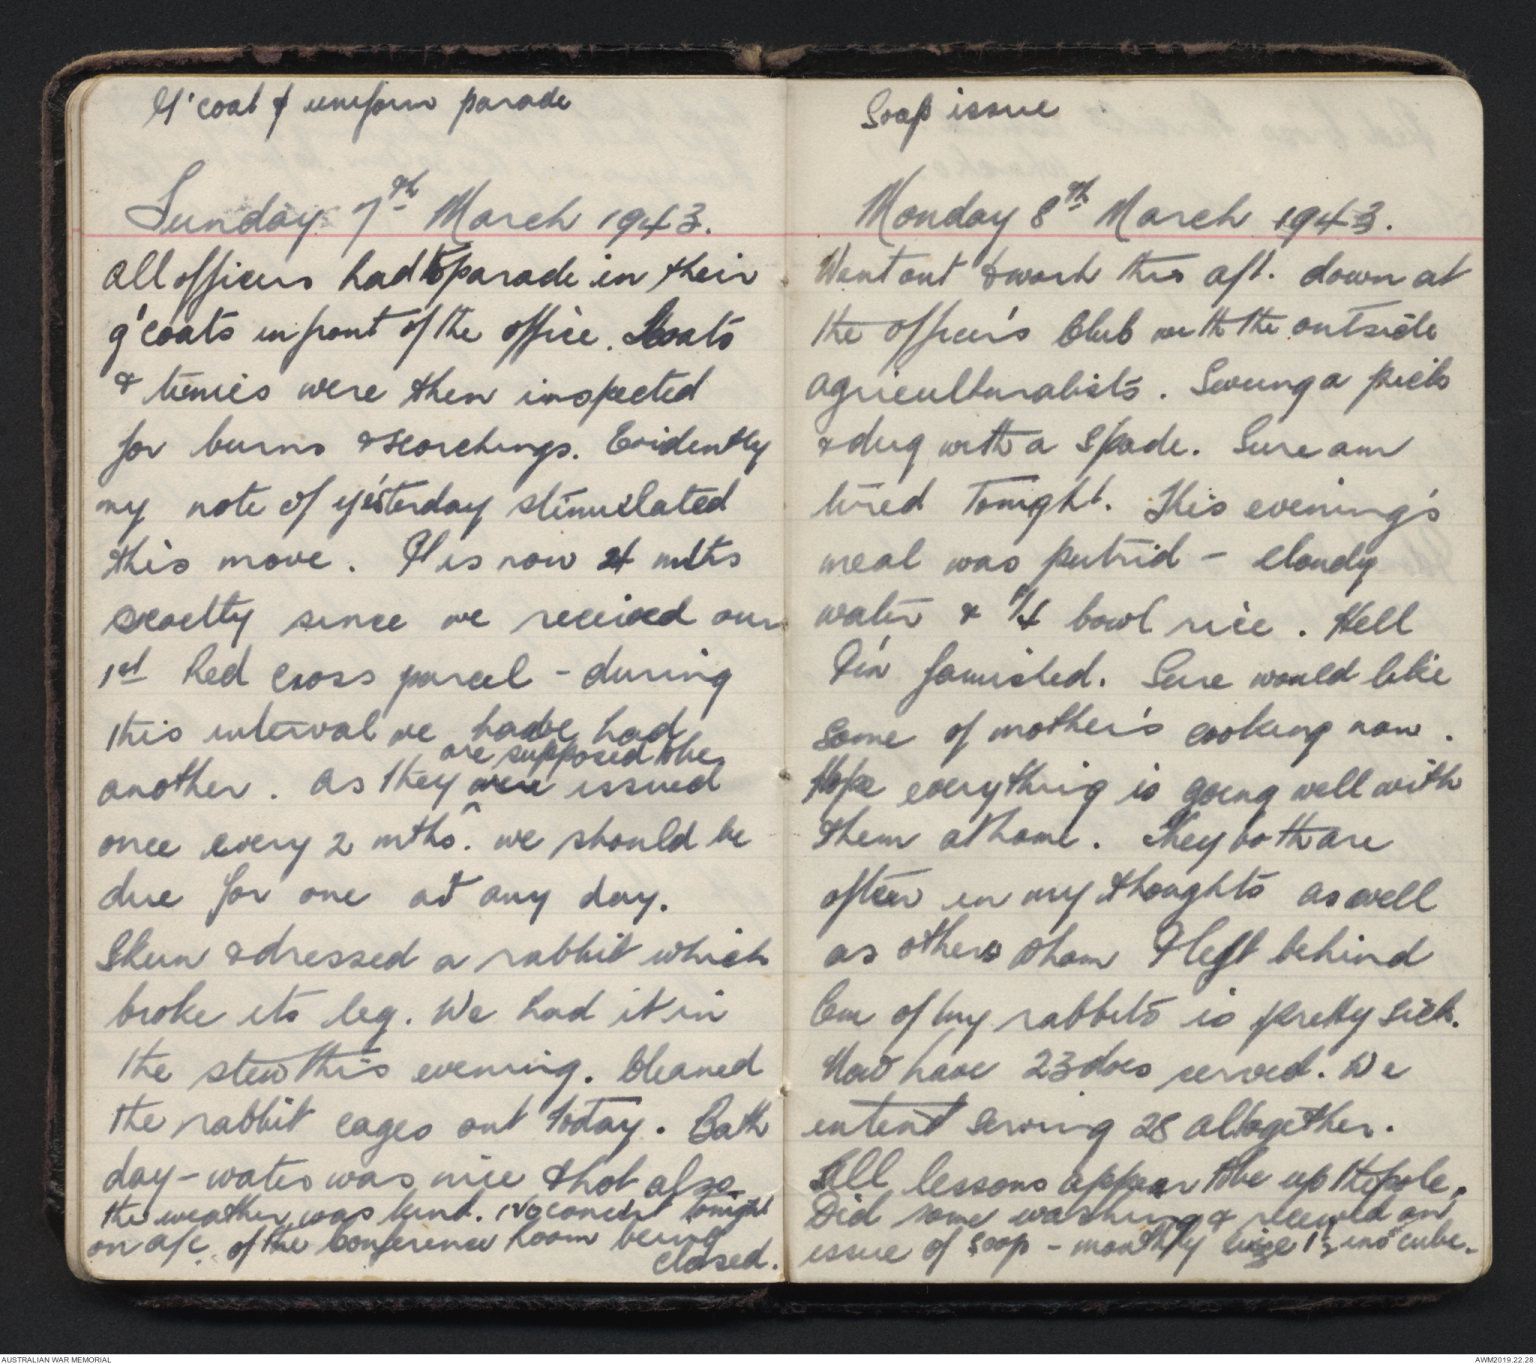 G'coat & uniform parade
Sunday 7th March 1943.
All officers had to parade in their
g'coats in front of the office. Coats
& tunics were then inspected
for burns & scorchings. Evidently
my note of yesterday stimulated
this move. It is now 4 mths
exactly since we received our
1st Red Cross parcel - during
this interval we have had
another. As they are supposed to be issued
once every 2 mths. we should be
due for one at any day.
Skun & dressed a rabbit which
broke its leg. We had it in
the stew this evening. Cleaned
the rabbit cages out today. Bath
day - water was nice & hot also
the weather was kind. No concert tonight
on a/c of the Conference Room being
closed.
Soap issue
Monday 8th March 1943.
Went out to work this aft. down at
the officer's Club with the outside
agriculturalists. Swung a pick
& dug with a spade. Sure am
tired tonight. This evening's
meal was putrid - cloudy
water & 1/4 bowl rice. Hell
I'm famished. Sure would like
some of mother's cooking now.
Hope everything is going well with
them at home. They both are
often in my thoughts as well
as others whom I left behind
One of my rabbits is pretty sick.
Now have 23 does served. We
intent serving 28 altogether.
All lessons appear to be up the pole.
Did some washing & received an
issue of soap - monthly size 1½ ins cube.
AUSTRALIAN WAR MEMORIAL
AWM2019.22.28